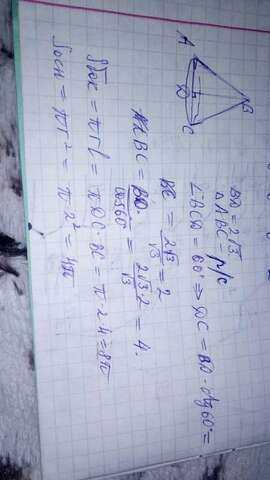 A
B
D
C
BD = 2√3
△ABC = р/с
∠BCD = 60° ⇒ DC = BD · ctg 60° =
= 2√3/√3 = 2
BC = BD/cos60 = 2√3·2/√3 = 4.
Sбок = πrl = π DC BC = π · 2 · 4 = 8π
Sосн = πr² = π · 2² = 4π